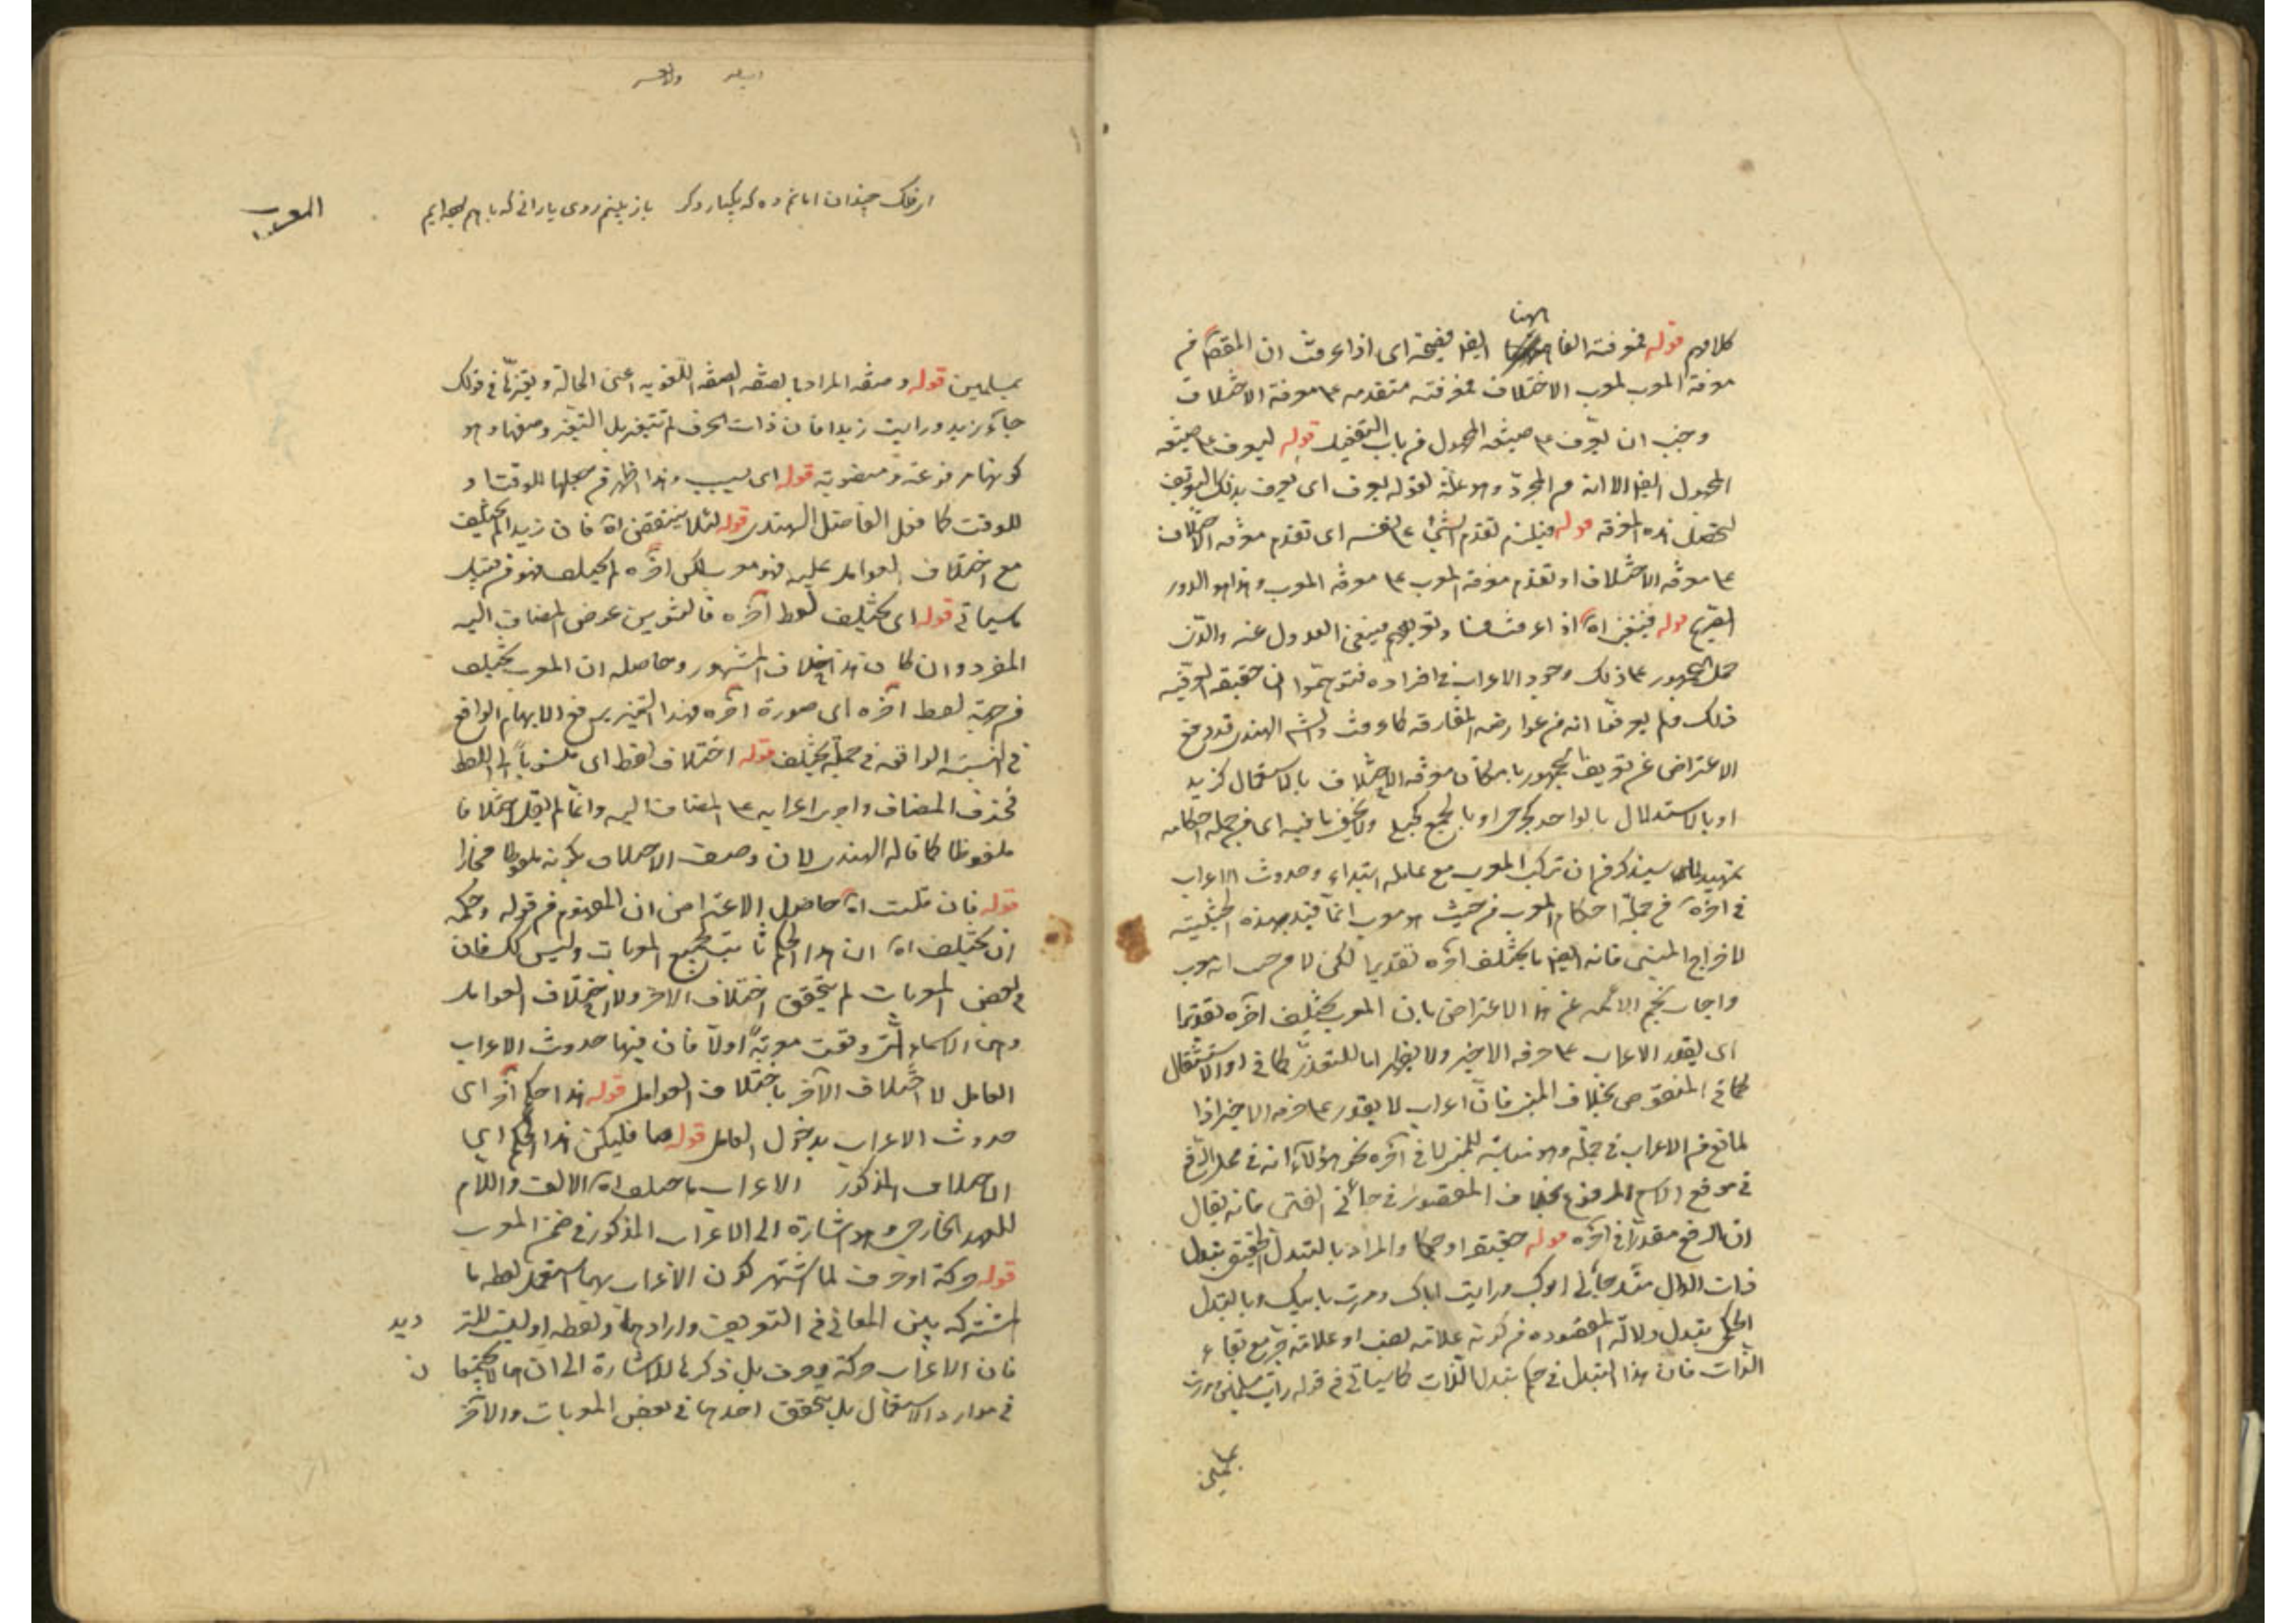 كلامهم قوله فمعرفته الفا
الهنا
ايضا فصيحة اى اذا عرفت ان المقصود من
معرفة المعرب لمعرب الاختلاف فمعرفته متقدمه على معرفة الاختلاف
وجب ان يعرف على صيغه المجهول من باب التفعيل قوله ليعرف على صيغه
المجهول ايضا الا انه من المجرد وهو علة لقوله يعرف اى يعرف بذلك التعريف
لتحصل هذه المعرفه قوله فيلزم تقدم الشئ على نفسه اى تقدم معرفه الاختلاف
على معرفه الاختلاف او تقدم معرفة المعرب على معرفه المعرب وهذا هو الدور
قوله فينبغى اه اذا عرفت فساد تعريفهم فينبغى العدول عنه والذى
حمل الجمهور على ذلك وجود الاعراب فى افراده فتوهموا ان حقيقه
ذلك فلم يعرفوا انه من عوارضه المفارقه كما عرفت الهندى قد دفع
الاعتراض عن تعريف الجمهور بامكان معرفه الاختلاف بالاستعمال كزيد
او بالاستدلال بالواحد او بالجمع ولا يخفى ما فيه اى من جمله احكامه
تمهيد لما سيذكر من ان تركيب المعرب مع عامله ابتداء وحدوث الاعراب
فى آخره من جملة احكام المعرب من حيث هو معرب انما قيد بهذه الحيثيت
لاخراج المبنى فانه ايضا يختلف آخره تقديرا لكن لا من حيث انه معرب
واجاب نجم الائمه عن هذا الاعتراض بان المعرب يختلف آخره تقديرا
اى يقدر الاعراب على حرفه الاخير ولا يظهر اما للتعذر كما فى او الاستثقال
كما فى المنقوص بخلاف المبنى فان اعرابه لا يقدر على حرفه الاخير اذا
لمانع من الاعراب فى جملته وهو مناسبة للمبنى لا فى آخره نحو هؤلاء انه فى محل الرفع
فى موقع الاسم المرفوع بخلاف المقصور فى جاءنى الفتى فانه يقال
ان الرفع مقدر فى آخره قوله حقيقة او حكما والمراد بالتبدل الحقيقى تبدل
ذات الدال مثل جاءنى ابوك ورايت اباك ومررت بابيك وبالتبدل
الحكمى تبدل دلالته المقصوده من كونه علامة نصب او علامة جر مع بقاء
الذات فان هذا التبدل فى حكم تبدل الذات كما سيأتى فى قوله رأيت مسلمين ومررت
بمسلمين
از فلك چندان امانم ده كه يكبار دگر باز بينم روى يارانى كه با هم بوده ايم
المعرب
بمسلمين قوله وصفه المراد بالصفه الصفه اللغويه اعنى الحالة وتغيرها فى قولك
جاء زيد ورايت زيدا فان ذات الحرف لم تتغير بل التغير وصفها وهو
كونها مرفوعة ومنصوبة قوله اى بسبب وهذا اظهر من جعلها للوقت او
للوقت كما فعل الفاضل الهندى قوله لئلا ينتقض اه فان زيدا لم يختلف
مع اختلاف العوامل عليه فهو معرب لكن آخره لم يختلف فهو من قبيل
ما سيأتى قوله اى يختلف لفظ آخره فالتنوين عوض المضاف اليه
المفرد وان كان هذا خلاف المشهور وحاصله ان المعرب يختلف
من جهة لفظ آخره اى صورة آخره فهذا التمييز يرفع الابهام الواقع
فى النسبة الواقعه فى جملة يختلف قوله اختلاف لفظ اى منسوبا الى اللفظ
فحذف المضاف واجرى اعرابه على المضاف اليه وانما لم يقل اختلافا
ملفوظا كما قاله الهندى لان وصف الاختلاف بكونه ملفوظا مجازا
قوله فان قلت اه حاصل الاعتراض ان المفهوم من قوله وحكمه
ان يختلف اه ان هذا الحكم ثابت لجميع المعربات وليس كذلك فان
فى بعض المعربات لم يتحقق اختلاف الآخر ولا اختلاف العوامل
وهى الاسماء التى وقعت معربة اولا فان فيها حدوث الاعراب
العامل لا اختلاف الآخر باختلاف العوامل قوله هذا حكم آخر اى
حدوث الاعراب بدخول العامل قوله فليكن هذا الحكم اى
الاختلاف المذكور الاعراب ما اختلف اه الالف واللام
للعهد الخارجى وهو اشارة الى الاعراب المذكور فى ضمن المعرب
قوله حركة او حرف لما اشتهر كون الاعراب بهما استعمل لفظه ما
المشتركه بين المعانى فى التعريف وارادهما ولفظه او ليست للترديد
فان الاعراب حركة وحرف بل ذكرها للاشارة الى ان هما لا يجتمعان
فى موارد الاستعمال بل يتحقق احدهما فى بعض المعربات والآخر